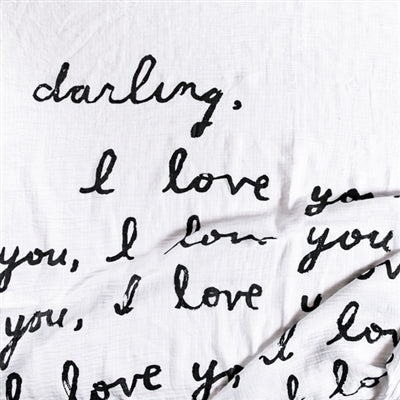 darling,
I love you
you, I love you
you, I love
you, I love
I love
I lo